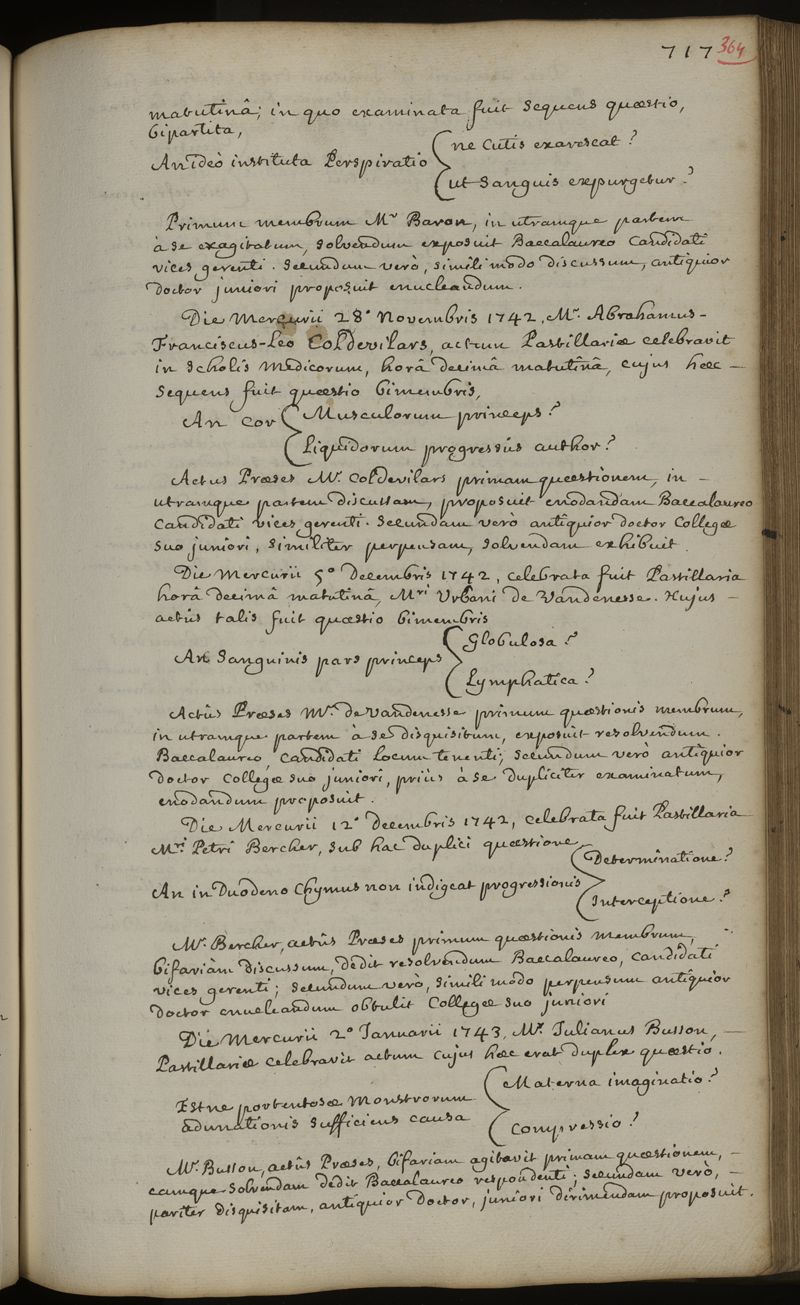 717 364
matutinâ; in quo examinata fuit sequens quæstio,
bipartita,
ne Cutis exarescat?
An ideò instituta Perspiratio
ut Sanguis expurgetur?
Primum membrum Mr. Baron, in utramque partem
à se exagitatum, solvendum exposuit Baccalaureo Candidati
vices gerenti. secundum verò, simili modo discussum, antiquior
Doctor juniori proposuit enucleandum.
Die Mercurii 28a Novembris 1742, Mr. Abrahamus-
Franciscus-Léo Coldevilars, actum Pastillariæ celebravit
in Scholis Medicorum, horâ decimâ matutinâ, cujus hæc -
sequens fuit quæstio bimembris,
Musculorum princeps?
An Cor
Liquidorum progressûs author?
Actus Præses Mr. Coldevilars primam quæstionem, in -
utramque partem discussam, proposuit enodandam Baccalaureo
Candidati vices gerenti. secundam verò antiquior doctor Collegæ
suo juniori, similiter perpensam, solvendam exhibuit.
Die Mercurii 5a Decembris 1742, celebrata fuit Pastillaria
horâ decimâ matutinâ, Mri Urbani de Vandenesse. Hujus -
actûs talis fuit quæstio bimembris
Globulosa?
An Sanguinis pars princeps
Lymphatica?
Actûs Præses Mr. de Vandenesse primum quæstionis membrum,
in utramque partem à se disquisitum, exposuit resolvendum.
Baccalaureo, Candidati locum tenenti; secundum verò antiquior
doctor Collegæ suo juniori, priùs à se dupliciter examinatum,
enodandum proposuit.
Die Mercurii 12a Decembris 1742, celebrata fuit Pastillaria
Mri Petri Bercher, sub hac duplici quæstione
Determinatione?
An in Duodeno Chymus non indigeat progressionis
Interceptione?
Mr. Bercher, actûs Præses primum quæstionis membrum,
bifariàm discussum, dedit resolvendum Baccalaureo, Candidati
vices gerenti; secundum verò, simili modo perpensum antiquior
Doctor enucleandum obtulit Collegæ suo juniori
Die Mercurii 2a Januarii 1743, Mr. Julianus Busson, -
Pastillariæ celebravit actum cujus hæc erat duplex quæstio.
Materna imaginatio?
Estne portentosæ Monstrorum
adunationis sufficiens causa
Compressio?
Mr. Busson, actûs Præses, bifariam agitavit primam quæstionem, -
eamque solvendam dedit Baccalaureo respondenti; secundam verò, -
pariter disquisitam, antiquior Doctor, juniori dirimendam proposuit.